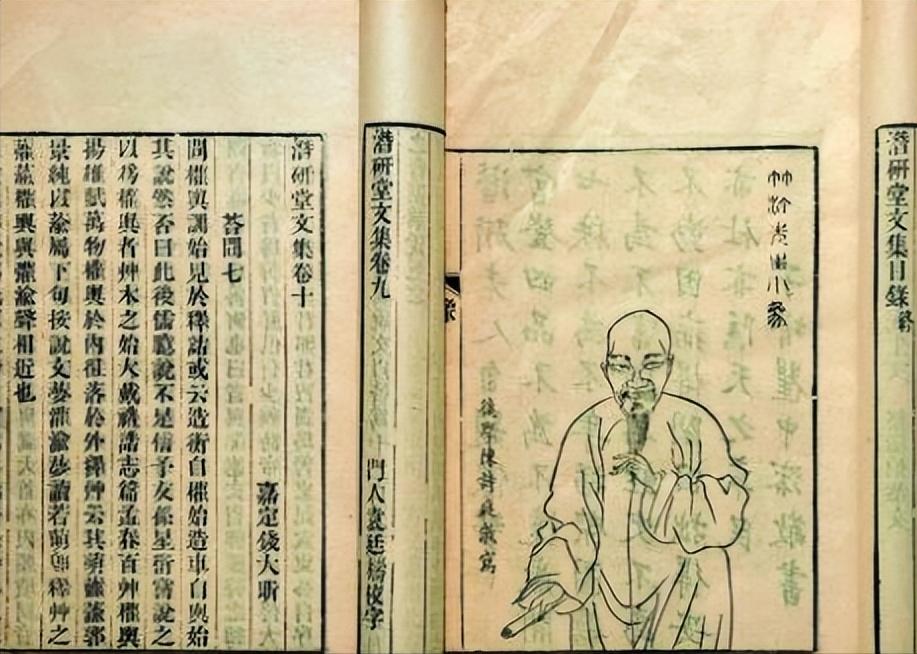 潛研堂文集目錄
竹汀先生小象
後學陳詩庭敬寫
潛研堂文集卷九
門人袁廷檮校字
潛研堂文集卷十
嘉定錢大昕
答問七
問權輿訓始見於釋詁或云造衡自權始造車自輿始
其說然否曰此後儒臆說不足信予友孫星衍嘗說之
以爲權輿者艸木之始大戴禮誥志篇孟春百艸權輿
揚雄賦萬物權輿於內徂落於外釋艸云其萌虇蕍郭
景純以蕍屬下句按說文夢灌渝夢讀若萌卽釋艸之
虇蕍權輿與灌渝聲相近也